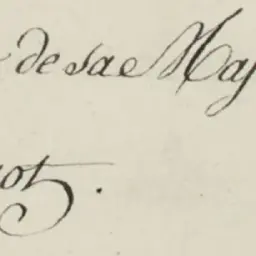 de sa Maj
ot.